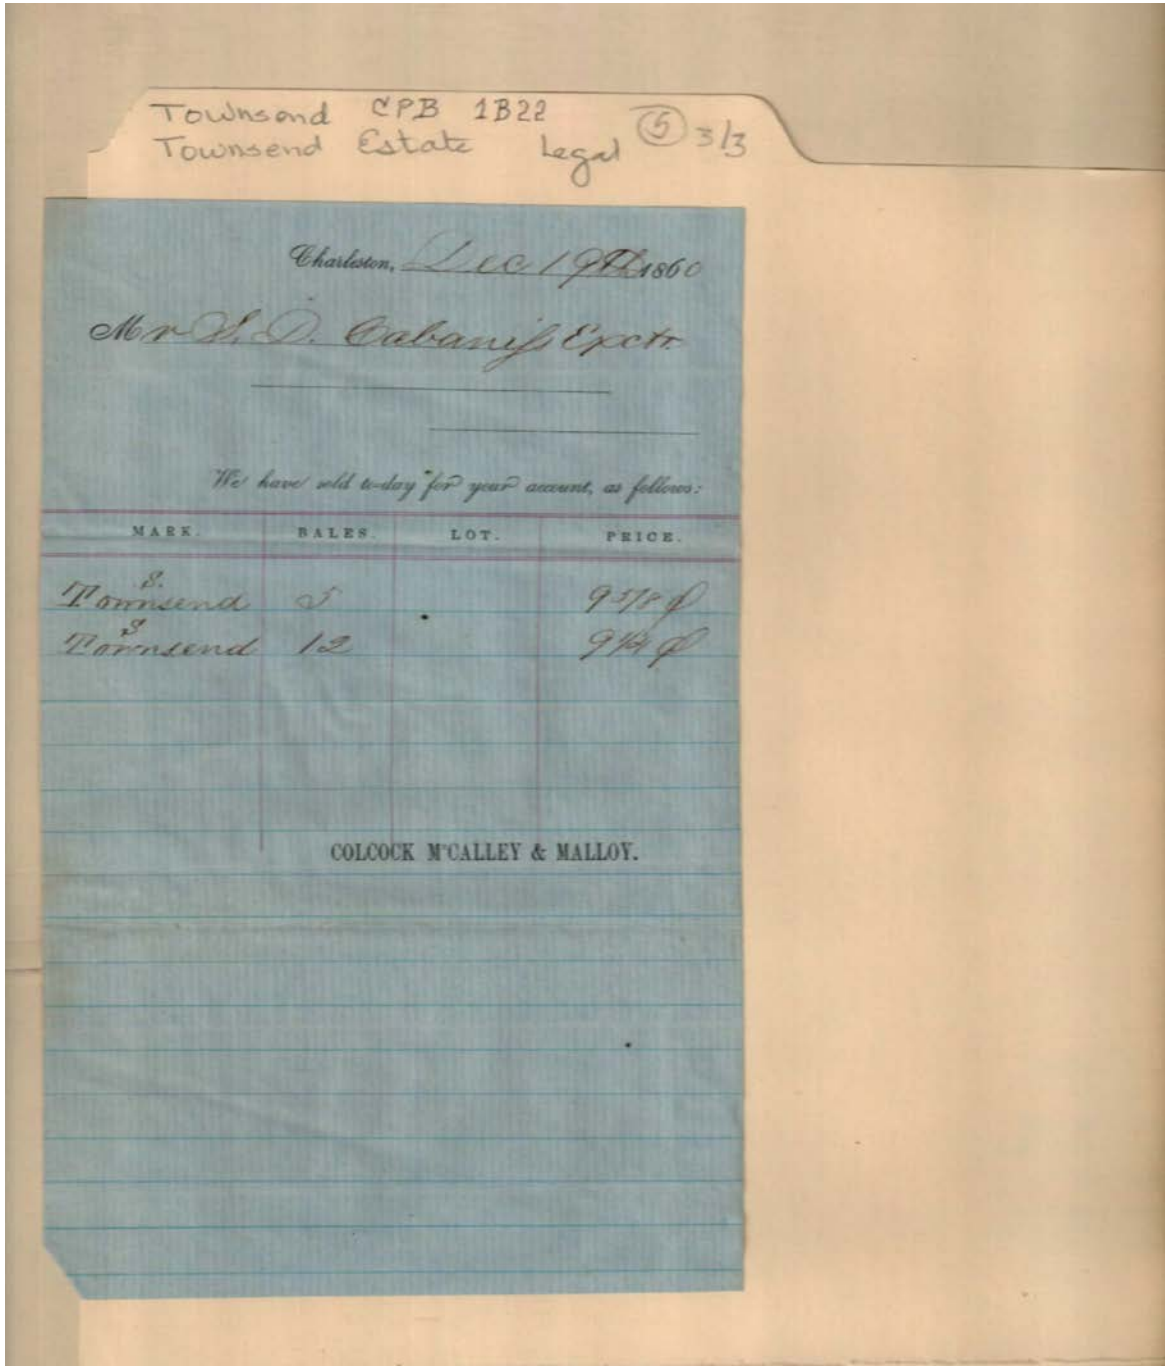 Townsend CPB 1B22
Townsend Estate Legal 5 3/3
Charleston, Dec 19th 1860
Mr S. D. Cabaniſs Exctr.
We have sold to-day for your account, as follows:
MARK. BALES. LOT. PRICE.
S.
Townsend 5 9 5/8 ¢
S
Townsend 12 9 1/4 ¢
COLCOCK McCALLEY & MALLOY.